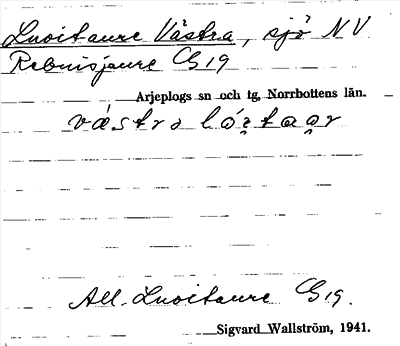 Luoitaure Västra, sjö NV
Rebnisjaure G19
Arjeplogs sn och tg, Norrbottens län.
västra
All. Luoitaure G19.
Sigvard Wallström, 1941.